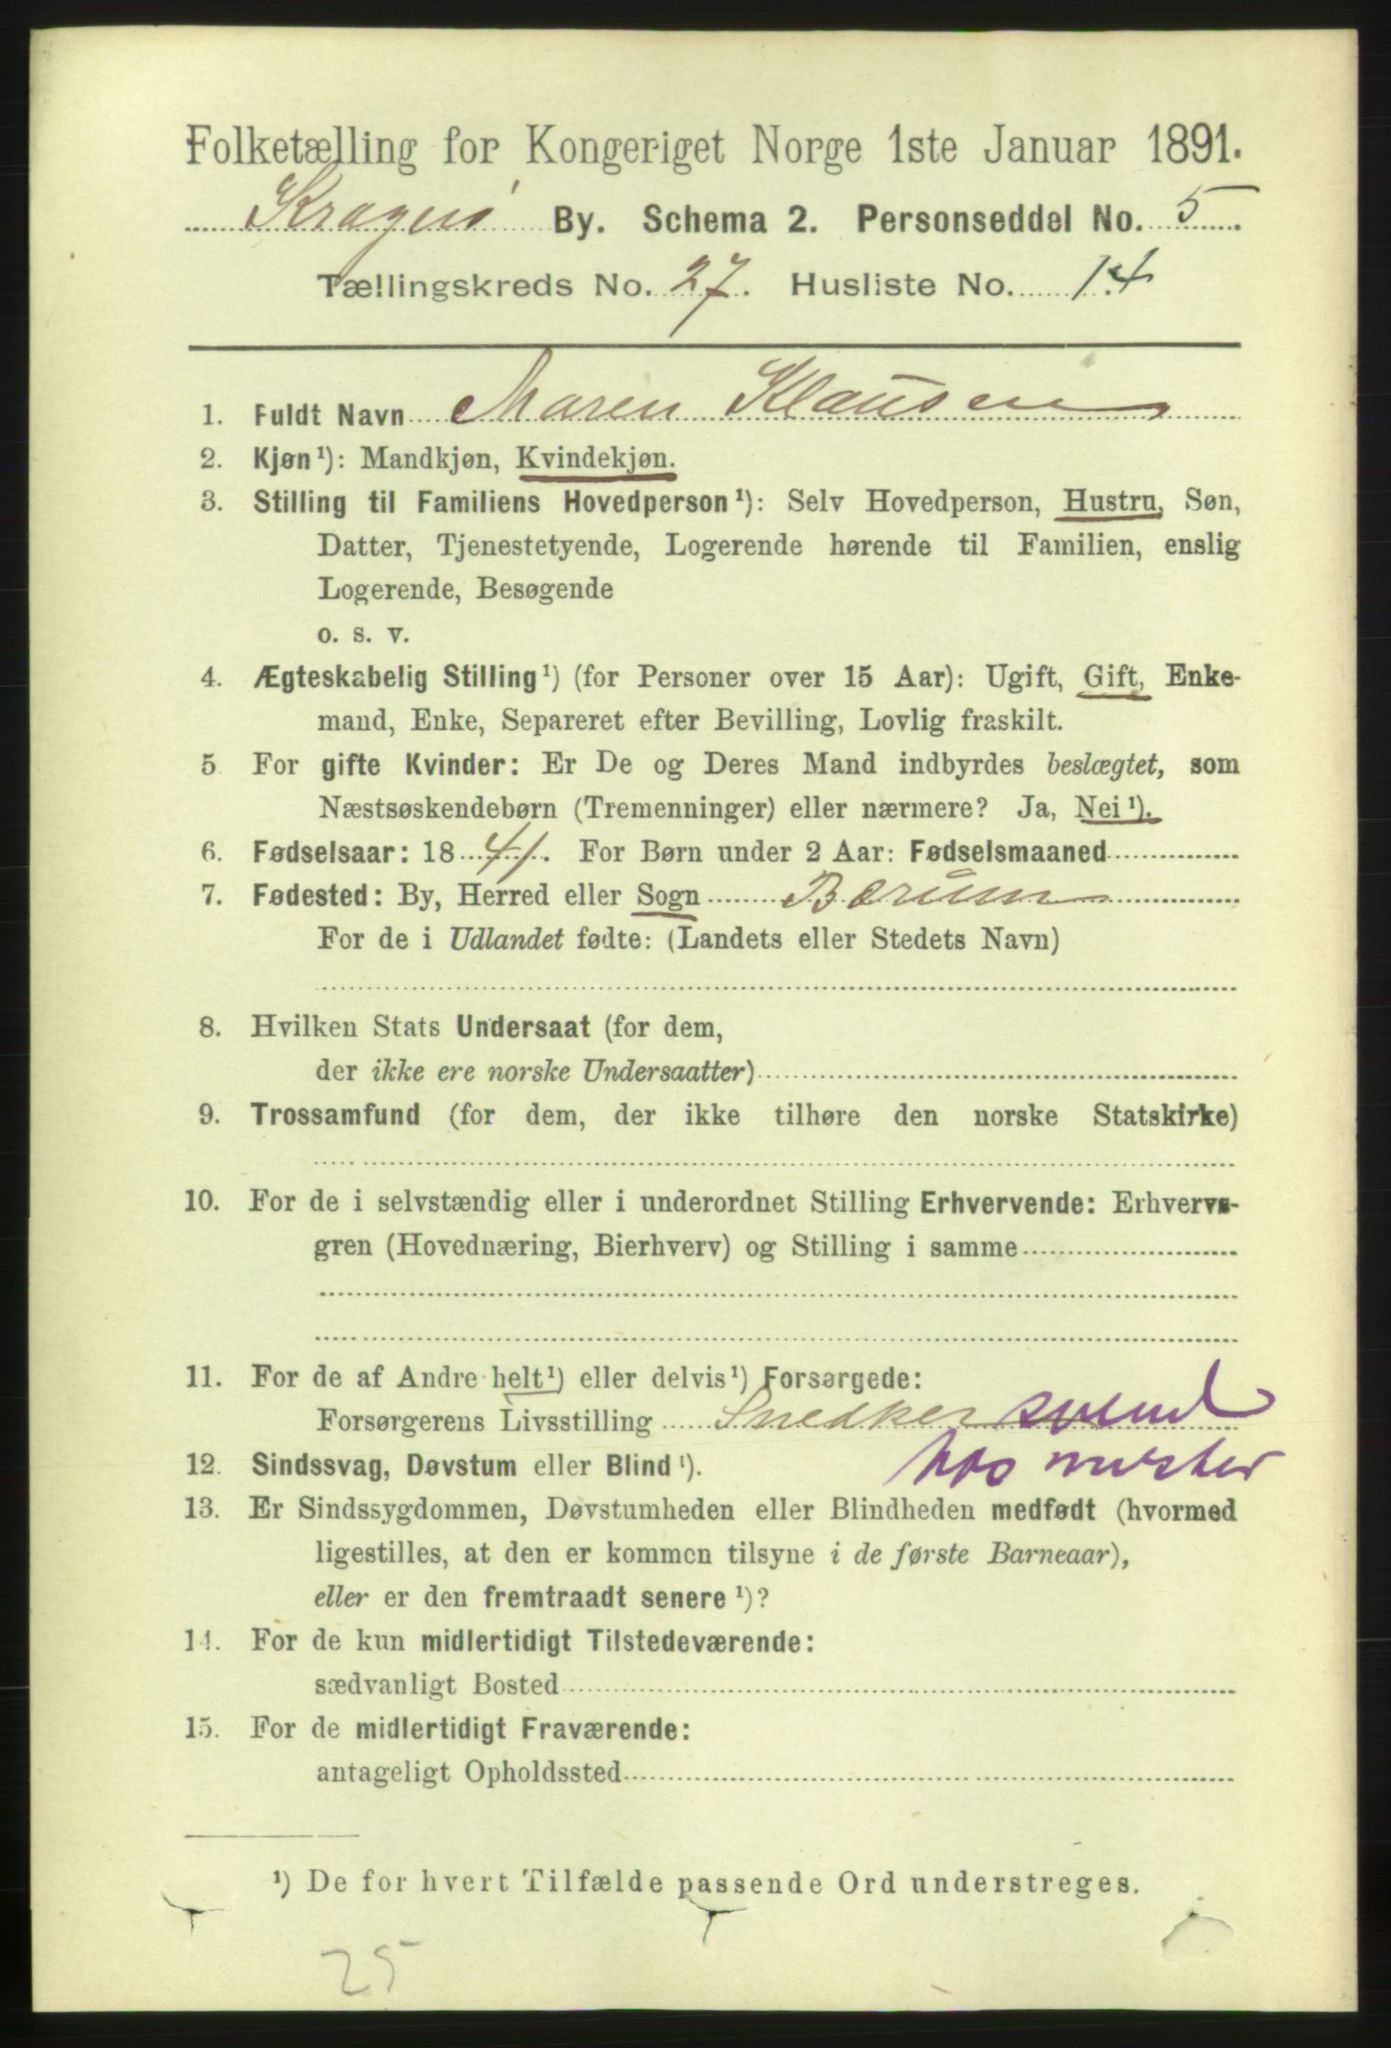 Folketælling for Kongeriget Norge 1ste Januar 1891.
Kragerø By. Schema 2. Personseddel No. 5
Tællingskreds No. 27. Husliste No. 14
1. Fuldt Navn Maren Klausen
2. Kjøn¹): Mandkjøn, Kvindekjøn.
3. Stilling til Familiens Hovedperson¹): Selv Hovedperson, Hustru, Søn,
Datter, Tjenestetyende, Logerende hørende til Familien, enslig
Logerende, Besøgende
o. s. v.
4. Ægteskabelig Stilling¹) (for Personer over 15 Aar): Ugift, Gift, Enke-
mand, Enke, Separeret efter Bevilling, Lovlig fraskilt.
5 For gifte Kvinder: Er De og Deres Mand indbyrdes beslægtet, som
Næstsøskendebørn (Tremenninger) eller nærmere? Ja, Nei¹).
6. Fødselsaar: 1841. For Børn under 2 Aar: Fødselsmaaned
7. Fødested: By, Herred eller Sogn Bærum
For de i Udlandet fødte: (Landets eller Stedets Navn)
8. Hvilken Stats Undersaat (for dem,
der ikke ere norske Undersaatter)
9. Trossamfund (for dem, der ikke tilhøre den norske Statskirke)
10. For de i selvstændig eller i underordnet Stilling Erhvervende: Erhvervs-
gren (Hovednæring, Bierhverv) og Stilling i samme
11. For de af Andre helt¹) eller delvis¹) Forsørgede:
Forsørgerens Livsstilling Snedker svend
hos mester
12. Sindssvag, Døvstum eller Blind¹).
13. Er Sindssygdommen, Døvstumheden eller Blindheden medfødt (hvormed
ligestilles, at den er kommen tilsyne i de første Barneaar),
eller er den fremtraadt senere¹)?
14. For de kun midlertidigt Tilstedeværende:
sædvanligt Bosted
15. For de midlertidigt Fraværende:
antageligt Opholdssted
¹) De for hvert Tilfælde passende Ord understreges.
25